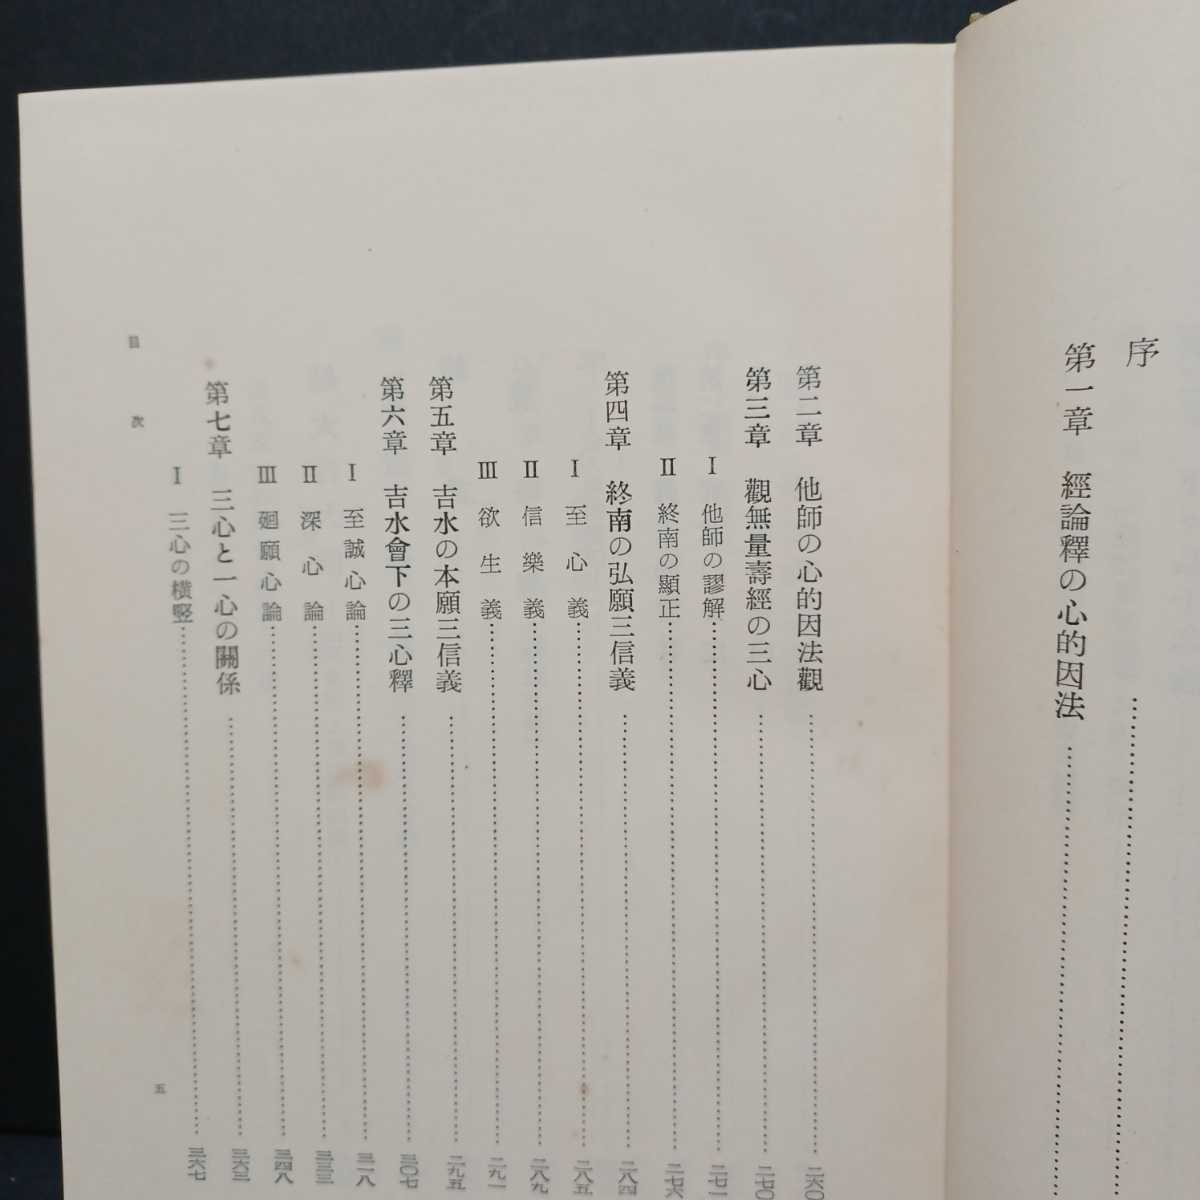 序……
第一章 經論釋の心的因法……
第二章 他師の心的因法觀……二六〇
第三章 觀無量壽經の三心……二七〇
Ⅰ 他師の謬解……二七一
Ⅱ 終南の顯正……二七六
第四章 終南の弘願三信義……二八四
Ⅰ 至心義……二八五
Ⅱ 信樂義……二八九
Ⅲ 欲生義……二九一
第五章 吉水の本願三信義……二九五
第六章 吉水會下の三心釋……三〇七
Ⅰ 至誠心論……三一八
Ⅱ 深心論……三三三
Ⅲ 廻願心論……三四八
第七章 三心と一心の關係……三六三
Ⅰ 三心の横竪……三六七
目次
五